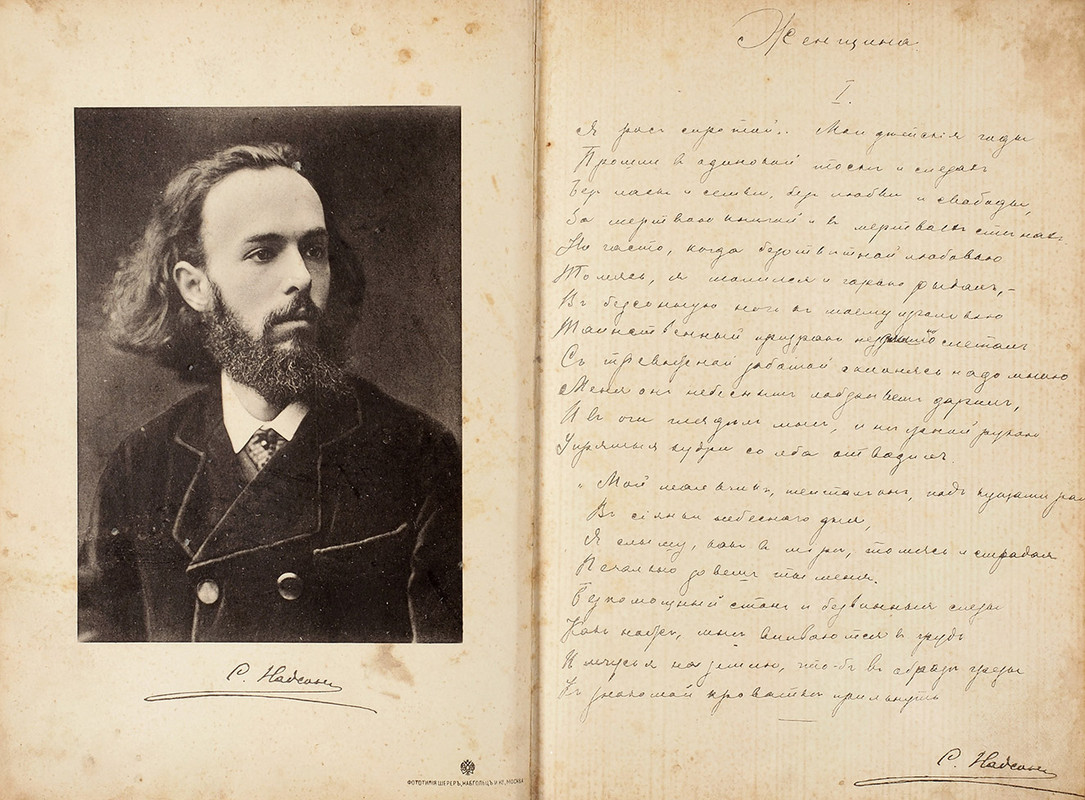 С. Надсонъ
ФОТОТИПІЯ ШЕРЕРЪ, НАБГОЛЬЦЪ И КО, МОСКВА
Женщина
I.
Я росъ сиротой.. Мои дѣтскія годы
Прошли в одинокой тоскѣ и слезахъ
Без ласкъ и семьи, без любви и свободы,
За мертвою книгой и в мертвыхъ стѣнахъ
Но часто, когда безотвѣтной любовью
Томясь, я молился и горько рыдалъ,–
Въ безсонную ночь къ моему изголовью
Таинственный призракъ слеталъ
Съ тревожной заботой склоняясь надо мною
Меня онъ небеснымъ лобзаньемъ дарилъ,
И въ очи глядѣлъ мнѣ, и нѣжной рукою
Упрямыя кудри со лба отводилъ.
„Мой мальчикъ, шепталъ онъ, подъ кущами рая
Въ сіяньи небеснаго дня,
Я слышу, какъ в мірѣ, томясь и страдая
Печально зовешь ты меня.
Безпомощный стонъ и безвинныя слезы
Какъ мнѣ вливаются в грудь
И мчусь я на землю, что-бъ в образѣ грезы
Къ знакомой кроваткѣ прильнуть
С. Надсонъ